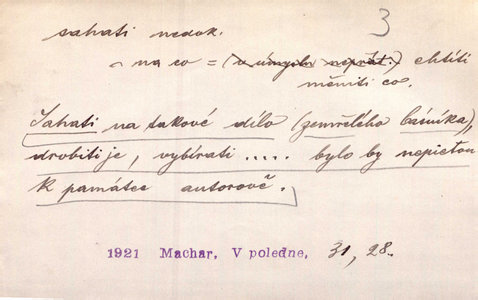 3
sahati nedok.
~ na co = (v úmyslu nepřát.) chtíti
měniti co.
Sahati na takové dílo (zemřelého básníka),
drobiti je, vybírati ..... bylo by nepietou
k památce autorově.
1921 Machar, V poledne, 31, 28.